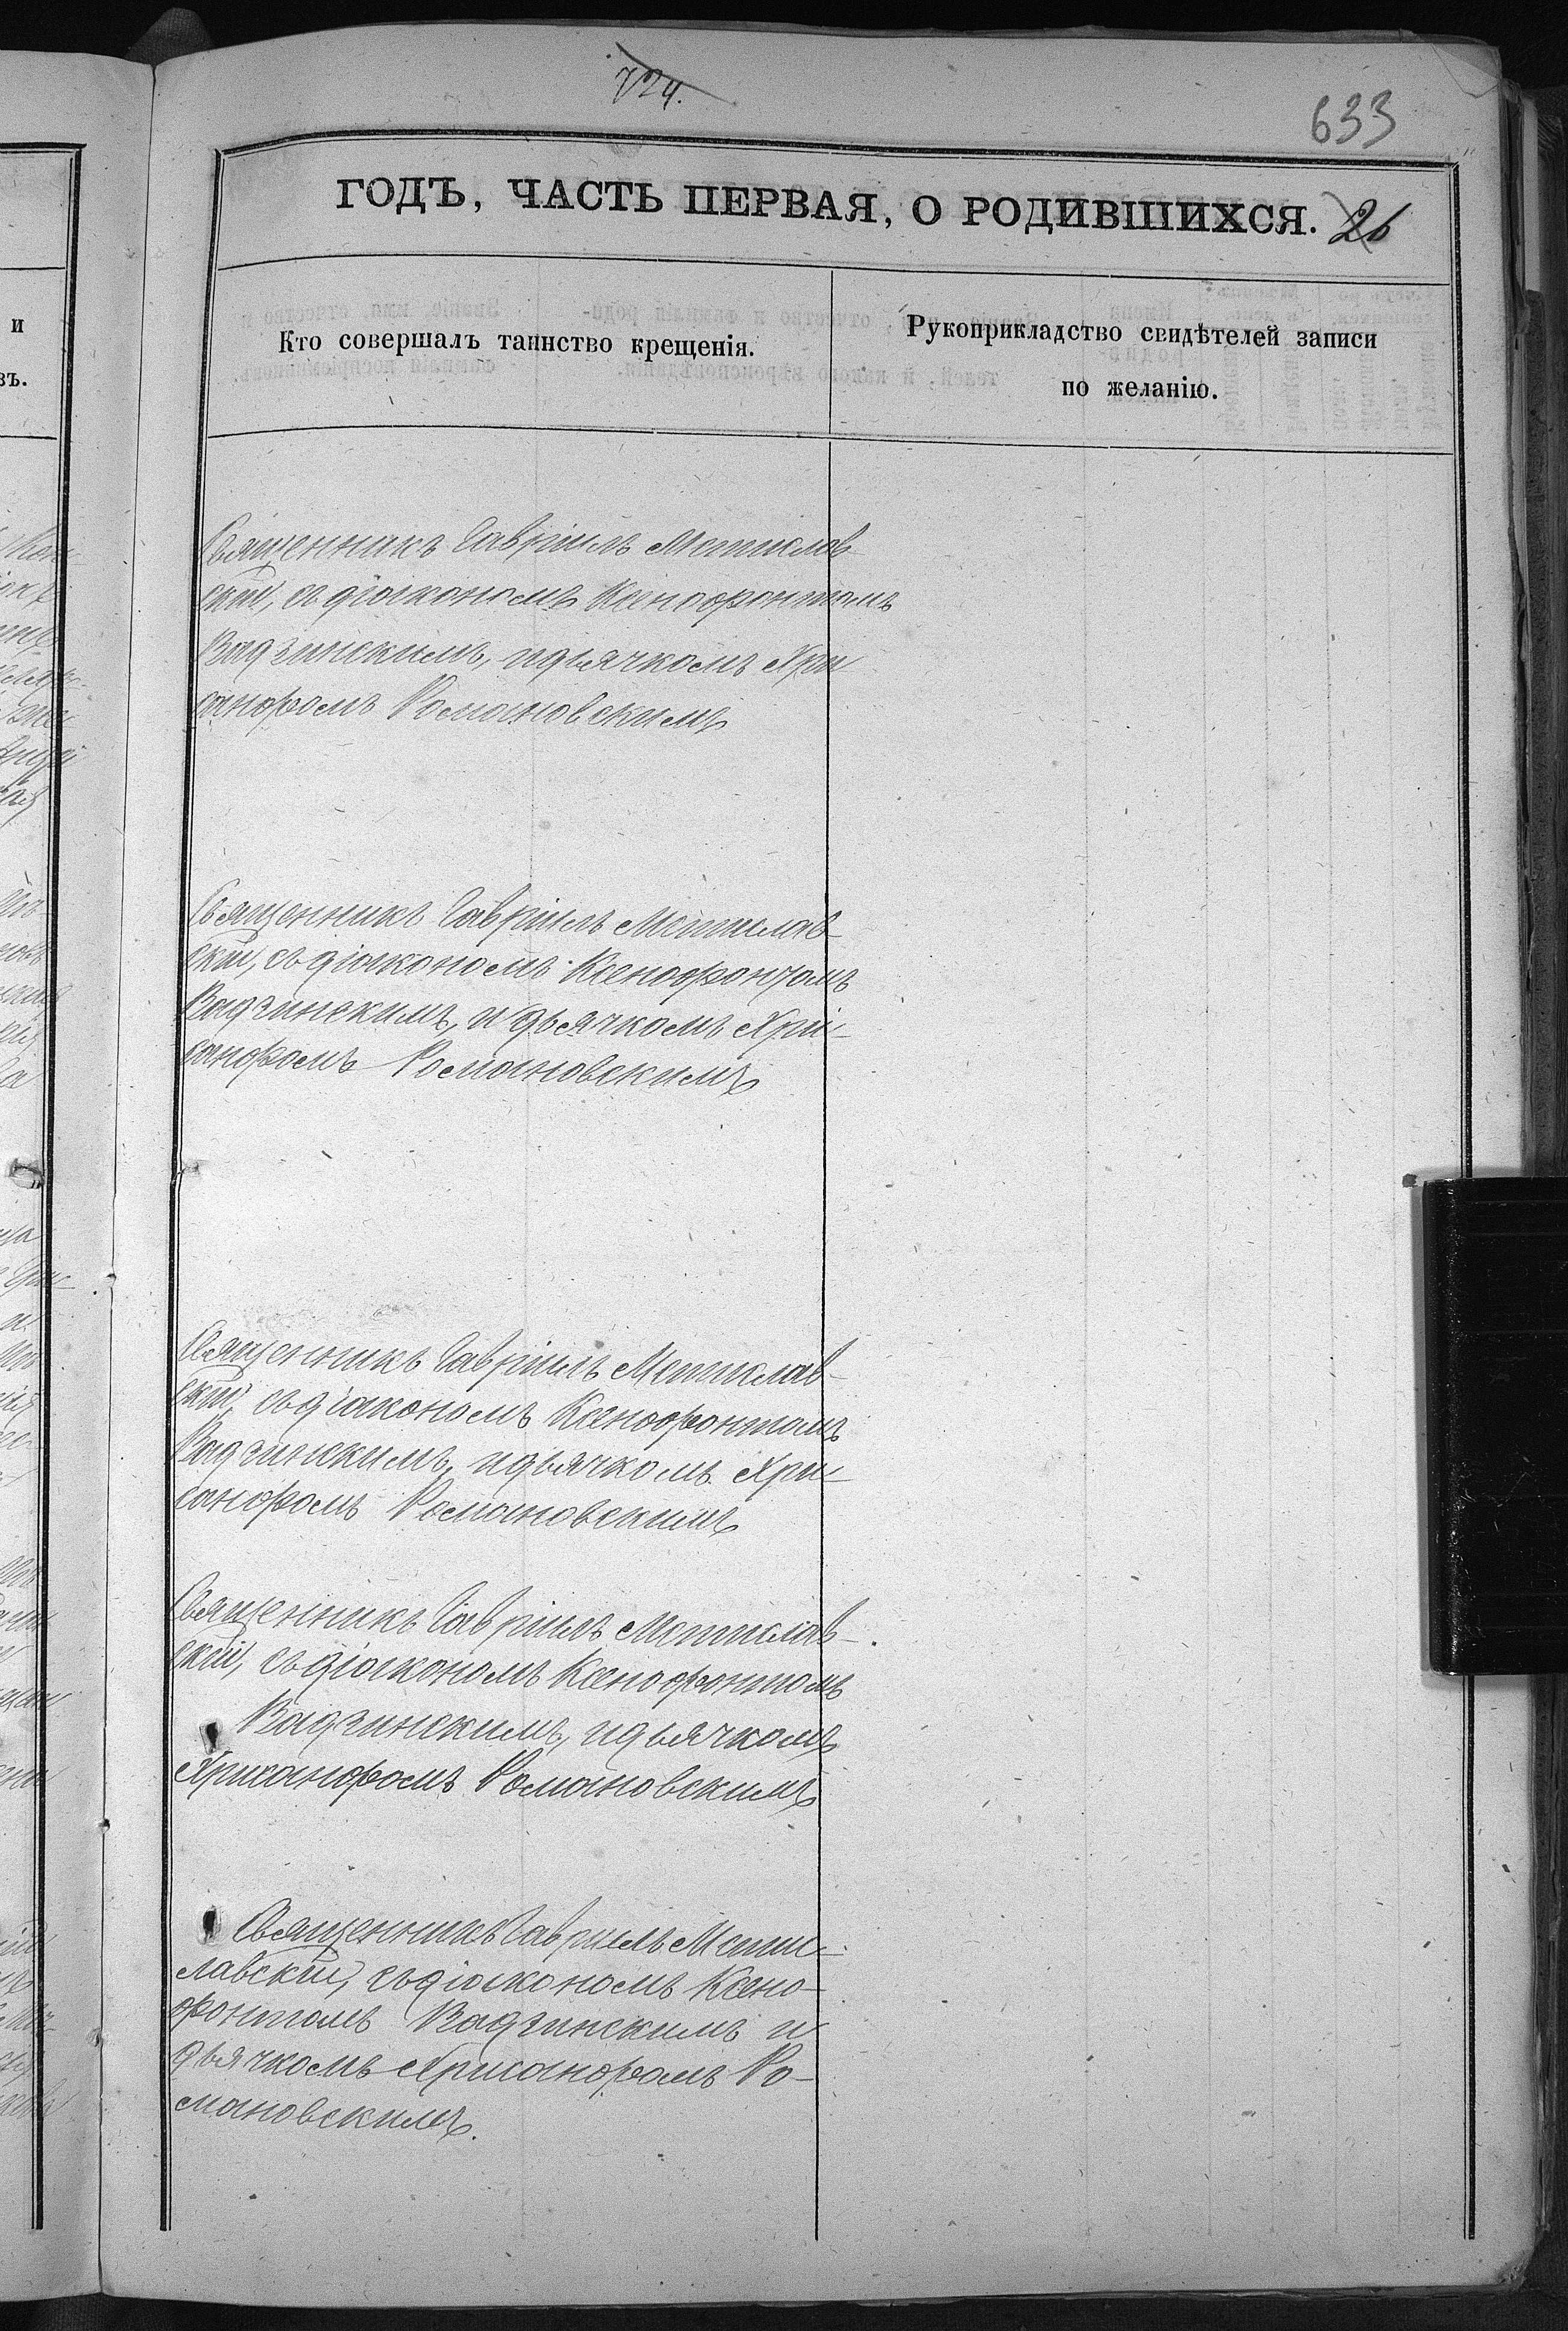 724.
633
ГОДЪ, ЧАСТЬ ПЕРВАЯ, О РОДИВШИХСЯ. 26
Кто совершалъ таинство крещенія.
Рукоприкладство свидѣтелей записи
по желанію.
и
въ.
Священникъ Гавріилъ Мстислав
скій, съ діакономъ Ксенофонтомъ
Вадзинскимъ, и дьячкомъ Хри
санфомъ Романовскимъ
Священникъ Гавріилъ Мстислав-
скій, съ діакономъ Ксенофонтомъ
Вадзинскимъ, и дьячкомъ Хри-
санфомъ Романовскимъ
Священникъ Гавріилъ Мстислав-
скій, съ діакономъ Ксенофонтомъ
Вадзинскимъ, и дьячкомъ Хри-
санфомъ Романовскимъ
Священникъ Гавріилъ Мстислав-
скій, съ діакономъ Ксенофонтомъ
Вадзинскимъ, и дьячкомъ
Хрисанфомъ Романовскимъ
Священникъ Гавріилъ Мсти-
славскій, съ діакономъ Ксено-
фонтомъ Вадзинскимъ и
дьячкомъ Хрисанфомъ Ро-
мановскимъ.